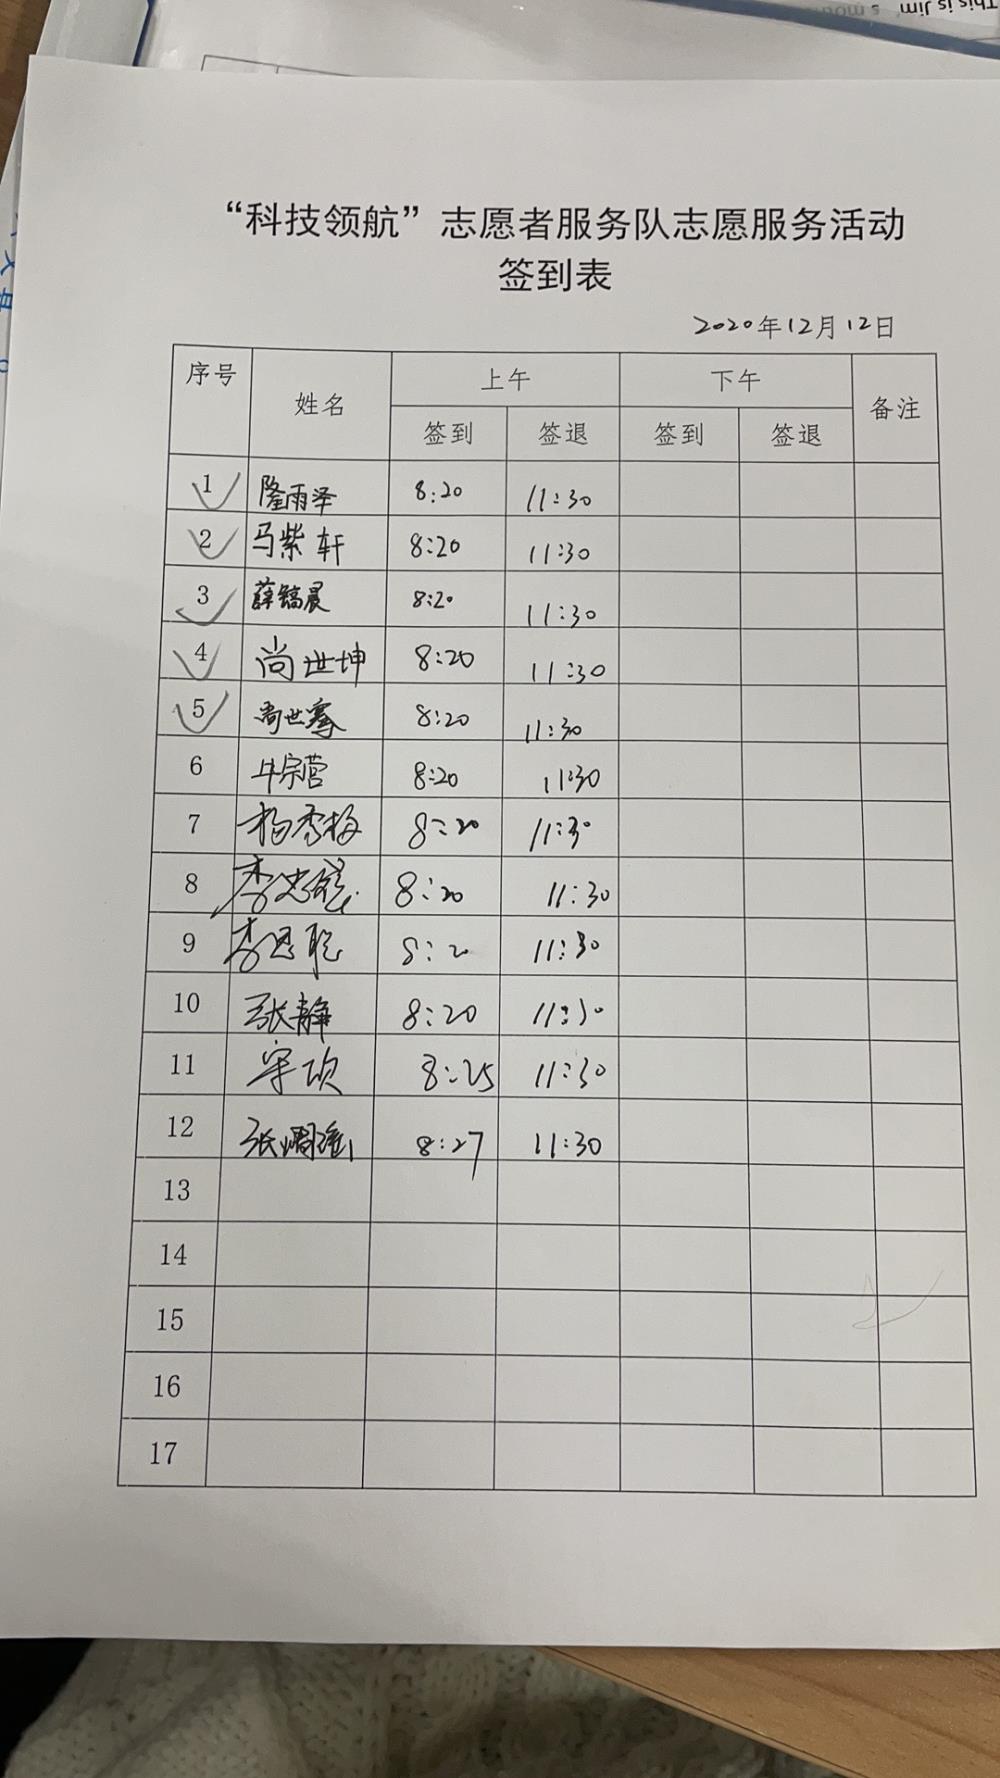 This is Jim's
“科技领航”志愿者服务队志愿服务活动
签到表
2020年12月12日
序号 姓名 上午 下午 备注
签到 签退 签到 签退
1 隆雨泽 8:20 11:30
2 马紫轩 8:20 11:30
3 薛镐晨 8:20 11:30
4 尚世坤 8:20 11:30
5 尚世骞 8:20 11:30
6 牛宗营 8:20 11:30
7 杨秀梅 8:20 11:30
8 8:20 11:30
9 李思聪 8:20 11:30
10 张静 8:20 11:30
11 8:25 11:30
12 8:27 11:30
13
14
15
16
17